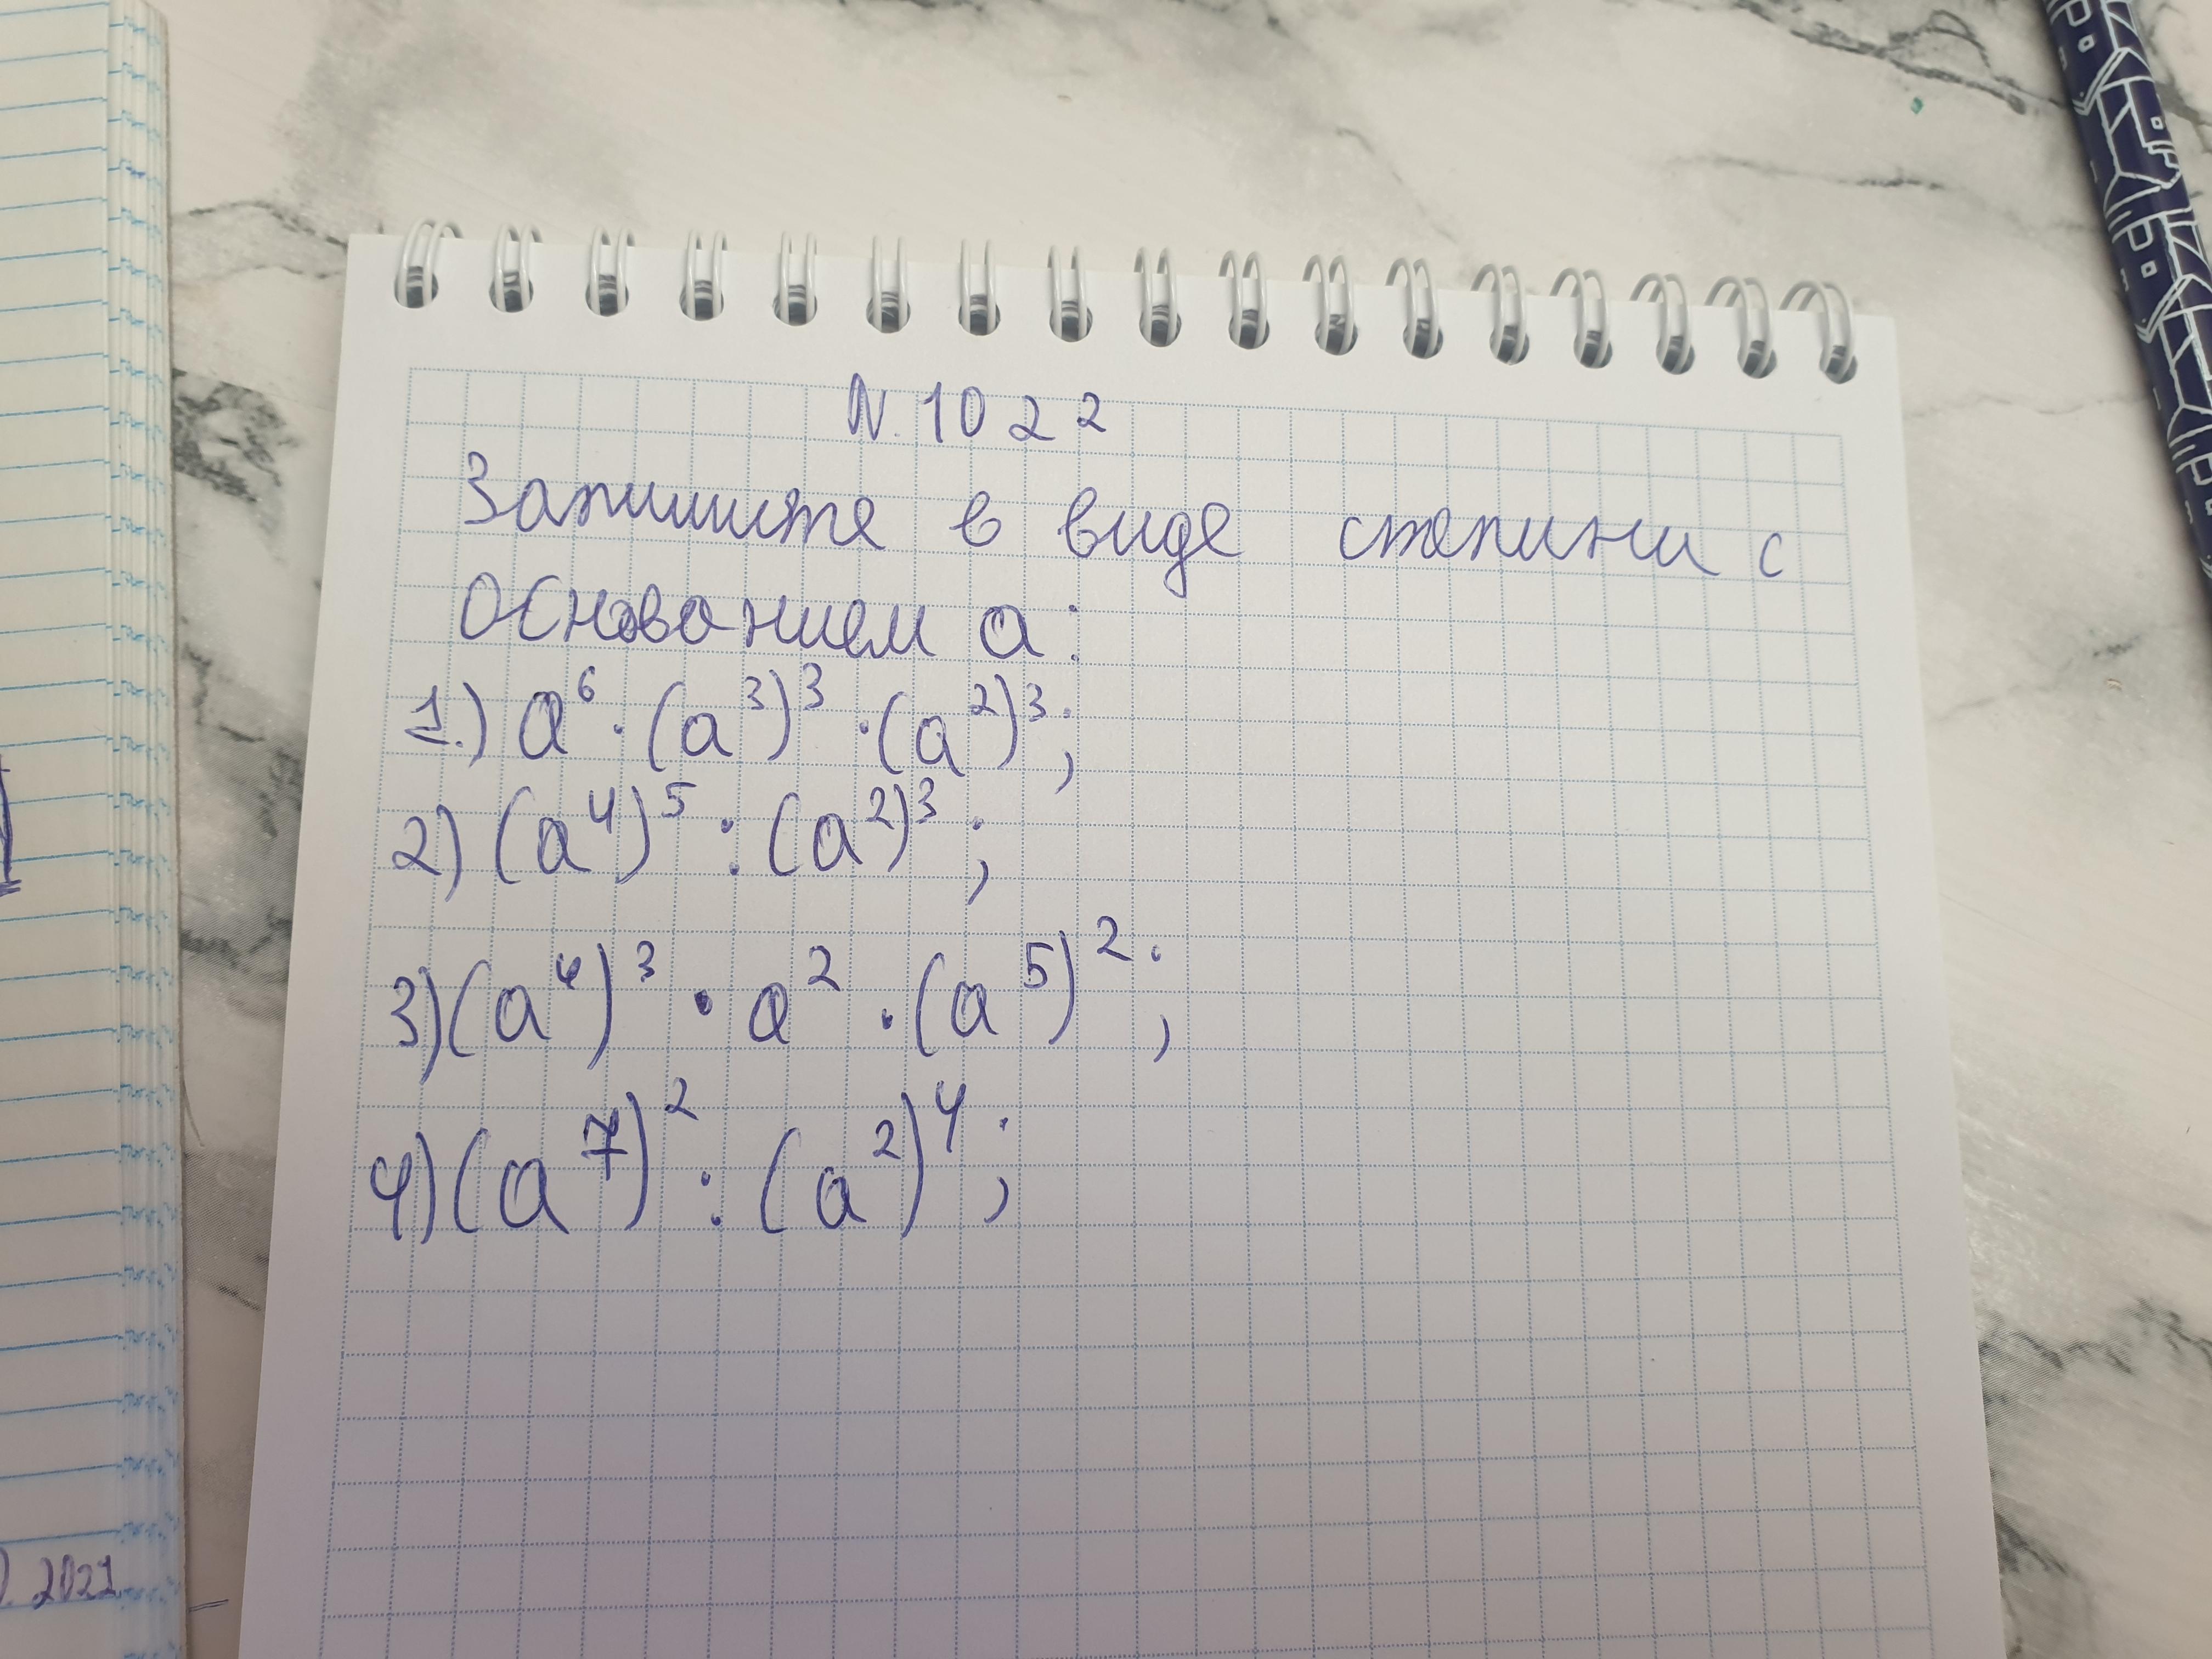 N. 1022
Запишите в виде степини с
основанием a:
1.) a⁶ · (a³)³ · (a²)³;
2) (a⁴)⁵ : (a²)³;
3) (a⁴)³ · a² · (a⁵)²;
4) (a⁷)² : (a²)⁴;
2021